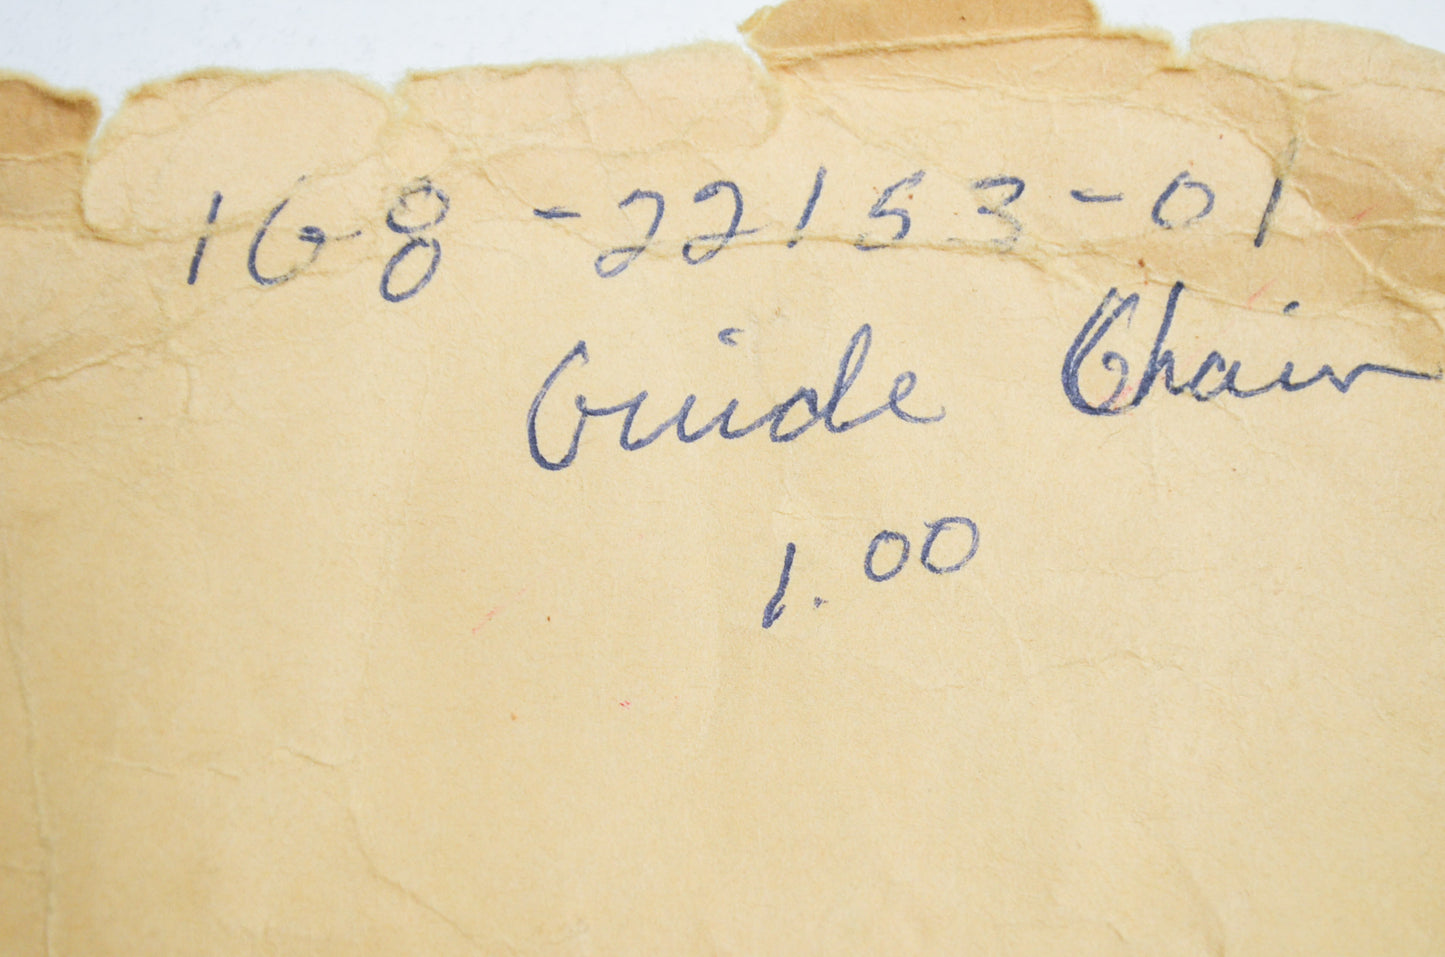 168-22153-01
Guide Chain
1.00